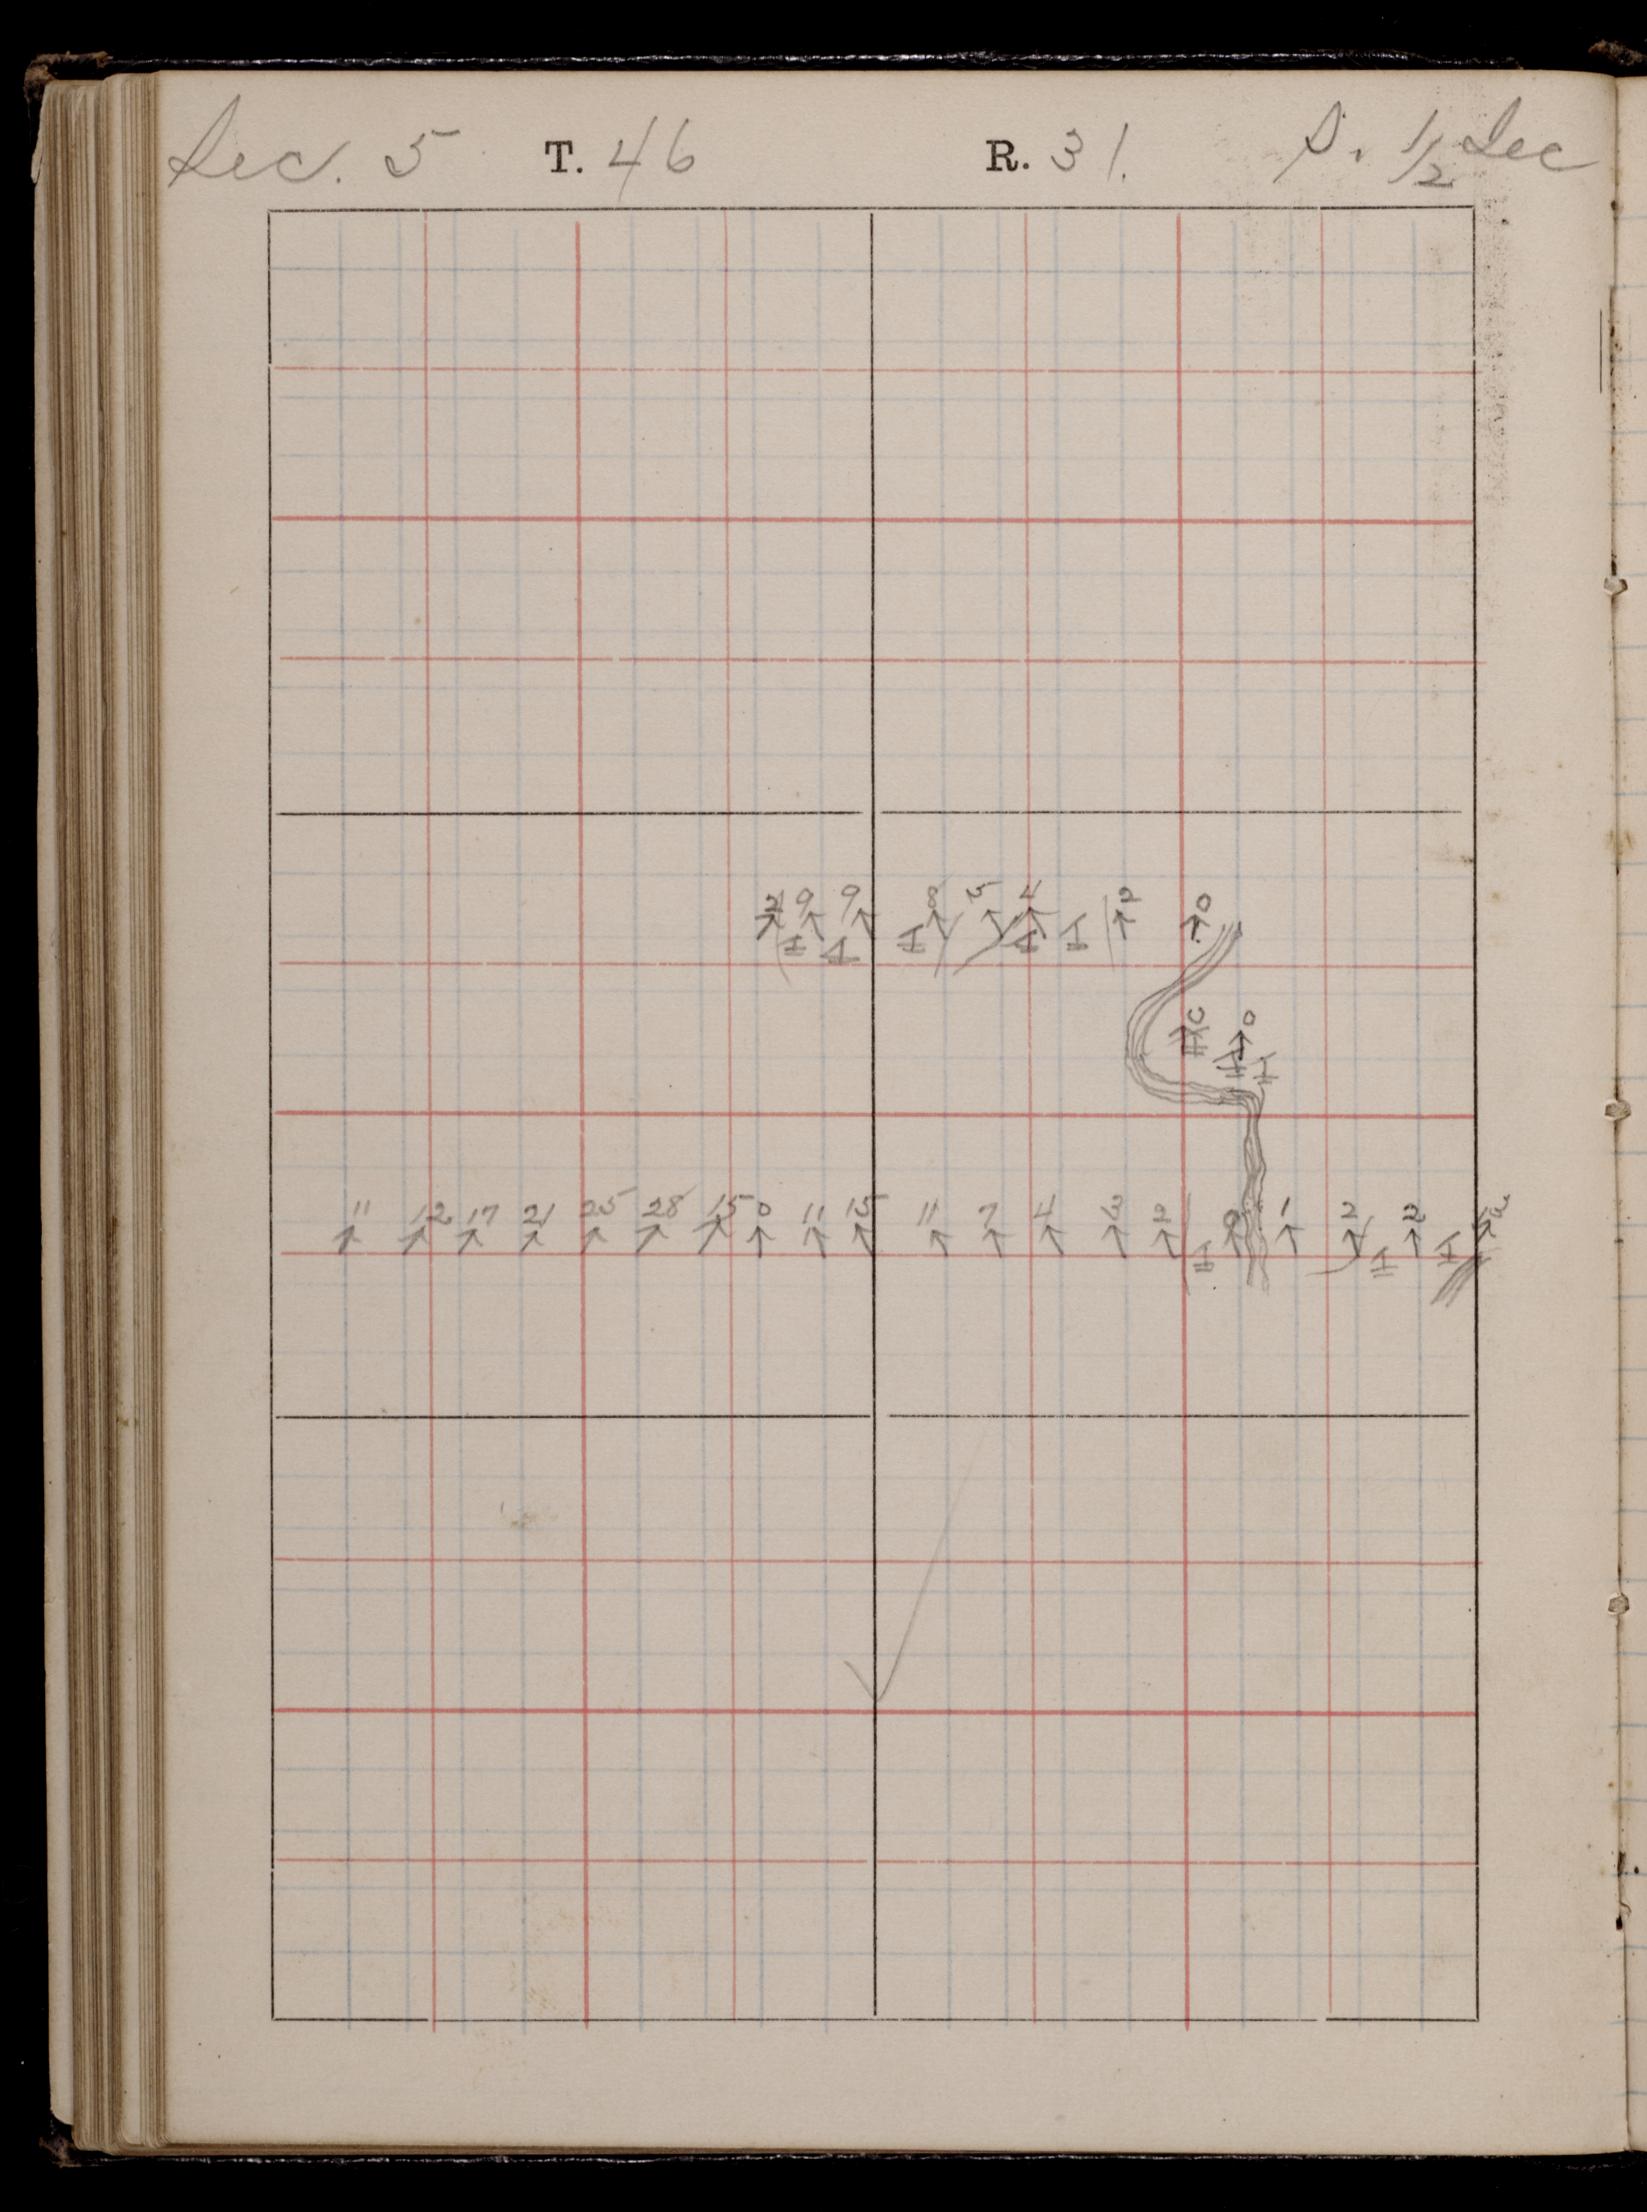 Sec. 5 T. 46 R. 31. S. 1/2 Sec
9 9 8 5 4 2 0
0 0
11 12 17 21 25 28 15 0 11 15 11 7 4 3 2 0 1 2 2